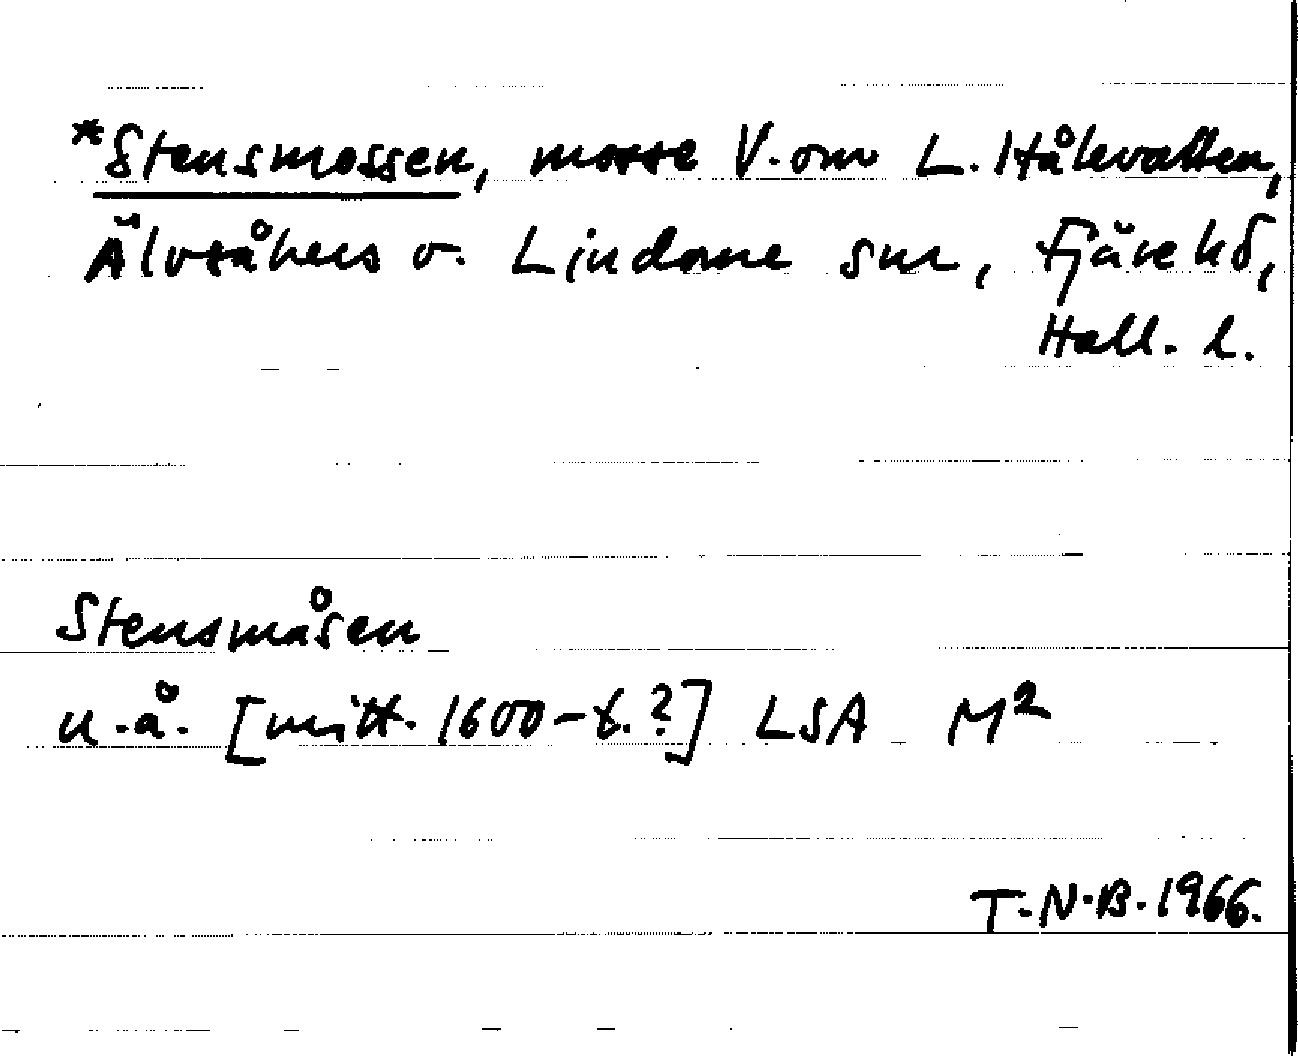 *Stensmossen, mosse V. om L. Hålevatten,
Älvsåkers o. Lindome snr, Fjäre hd,
Hall. l.
Stensmåsen
u.å. [mitt. 1600-t.?] LSA M2
T.N.B. 1966.